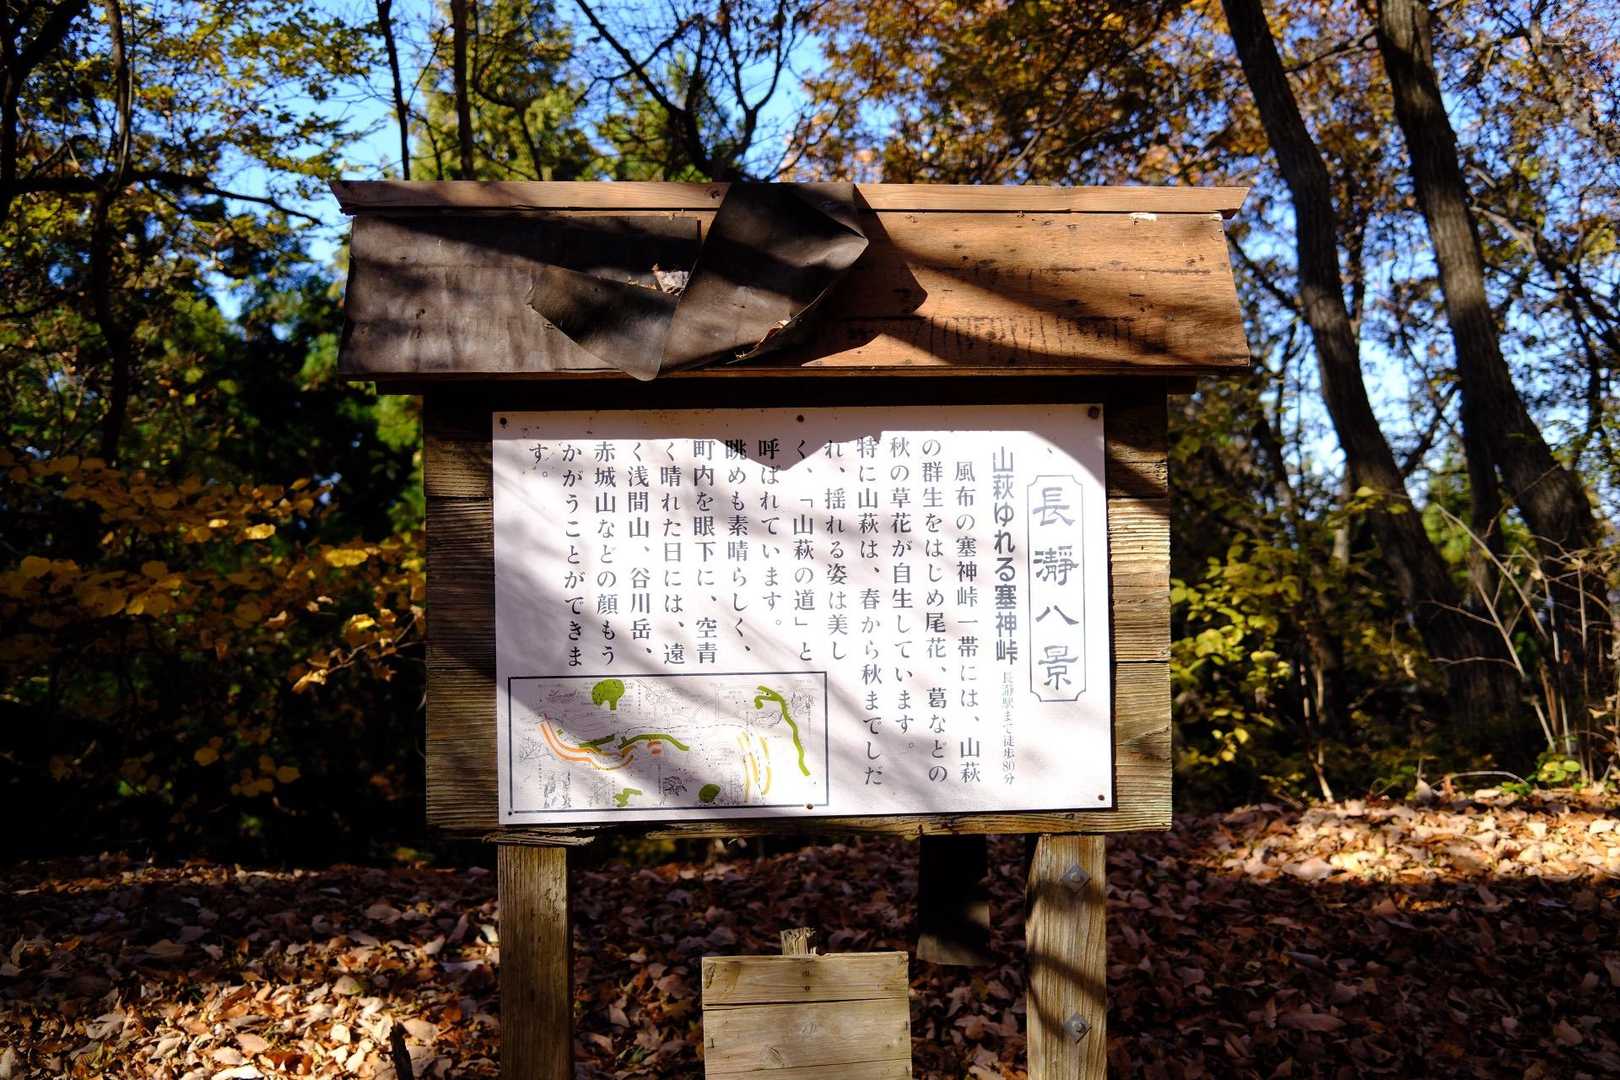 長瀞八景
山萩ゆれる塞神峠 長瀞駅まで徒歩80分
風布の塞神峠一帯には、山萩
の群生をはじめ尾花、葛などの
秋の草花が自生しています。
特に山萩は、春から秋までしだ
れ、揺れる姿は美し
く、「山萩の道」と
呼ばれています。
眺めも素晴らしく、
町内を眼下に、空青
く晴れた日には、遠
く浅間山、谷川岳、
赤城山などの顔もう
かがうことができま
す。